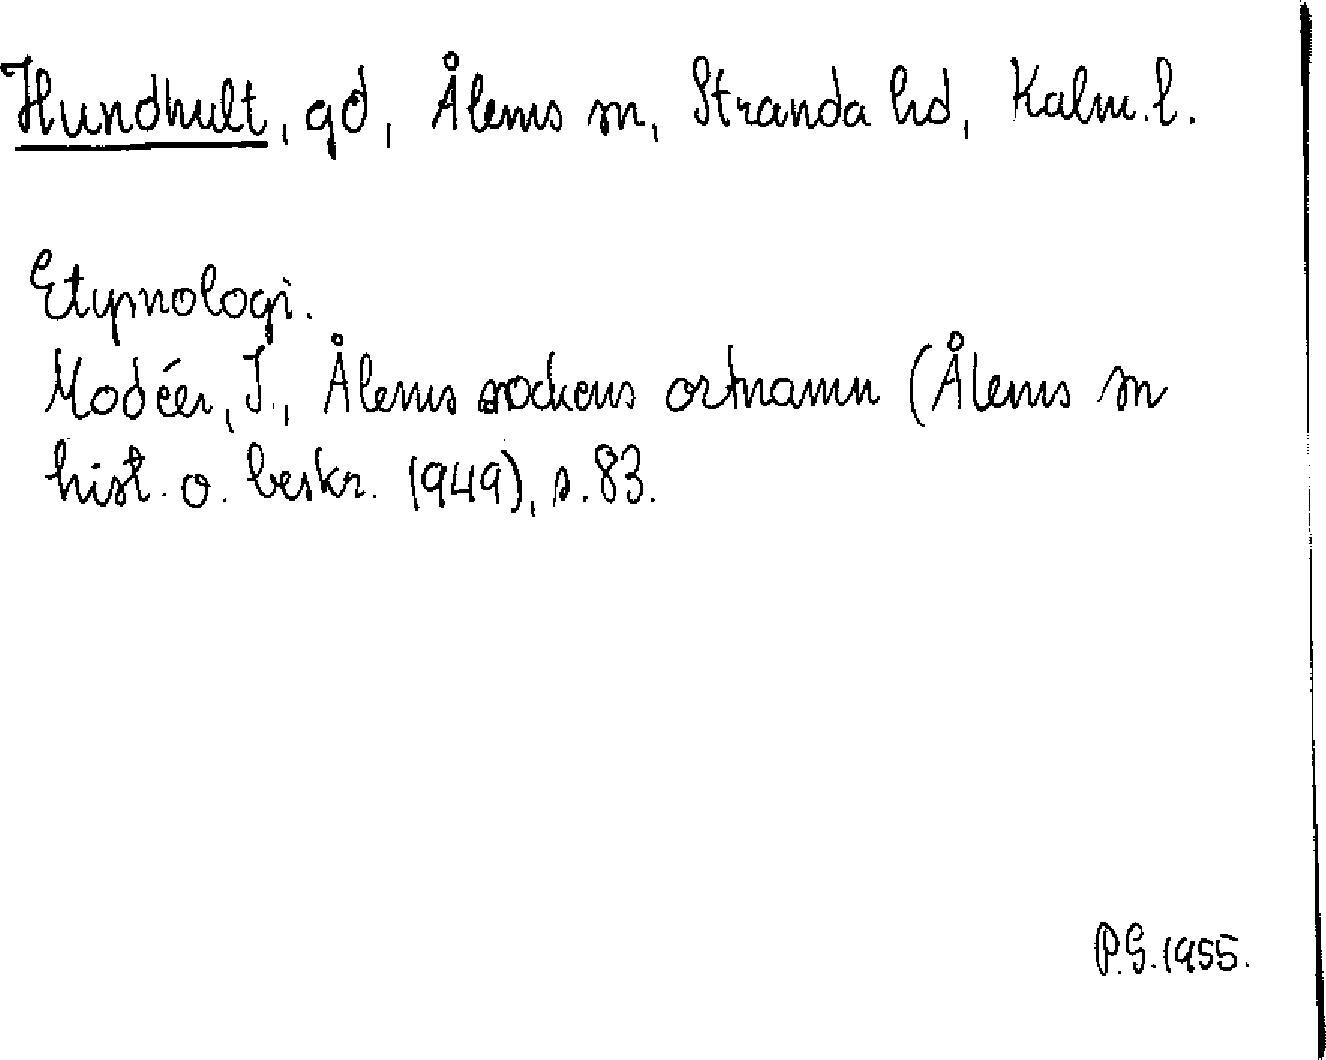 Hundhult, gd, Ålems sn, Stranda hd, Kalm. l.
Etymologi.
Modéer, I., Ålems sockens ortnamn (Ålems sn
hist. o. beskr. 1949), s. 83.
P.G. 1955.